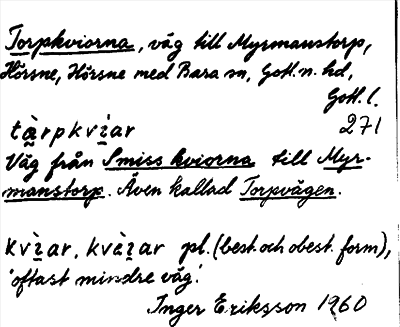 Torpkviorna, väg till Myrmanstorp,
Hörsne, Hörsne med Bara sn, Gotl. n. hd,
Gotl. l.
tàrpkvìar 271
Väg från Smiss kviorna till Myr-
manstorp. Även kallad Torpvägen.
kvìar, kvèiar pl. (best. och obest. form),
'oftast mindre väg'.
Inger Eriksson 1960